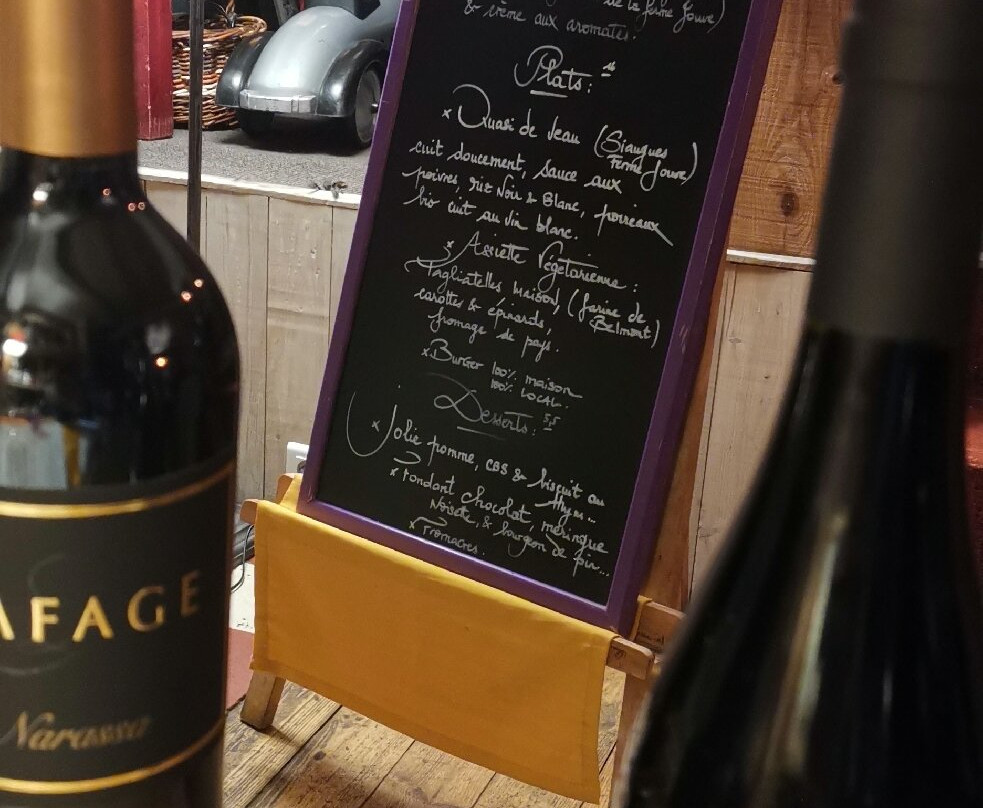 de la ferme Jouve)
& crème aux aromates.
Plats:
x Quasi de Veau (Siaugues
Ferme Jouve)
cuit doucement, sauce aux
poivres, riz Noir & Blanc, poireaux
bio cuit au vin blanc.
x Assiette Végétarienne :
Tagliatelles maison, (farine de
Belmont)
carottes & épinards,
fromage de pays.
x Burger 100% maison
100% LOCAL.
Desserts: 5,5
x Jolie pomme, CBS & biscuit au
thym...
x Fondant chocolat, meringue
Noisette, & bourgeon de pin...
x Fromages.
AFAGE
Narassa